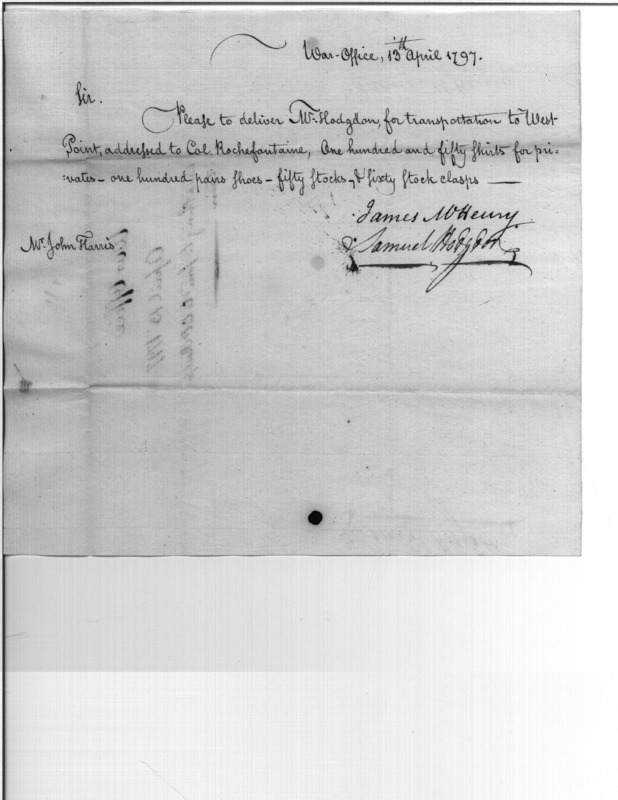 War-Office, 13th April 1797.
Sir.
Please to deliver Mr. Hodgdon, for transportation to West
Point, addressed to Col. Rochefontaine, One hundred and fifty shirts for pri=
=vates - one hundred pairs shoes - fifty stocks, & sixty stock clasps —
James McHenry
Samuel Hodgdon
Mr. John Harris.
War Office
April 13. 1797